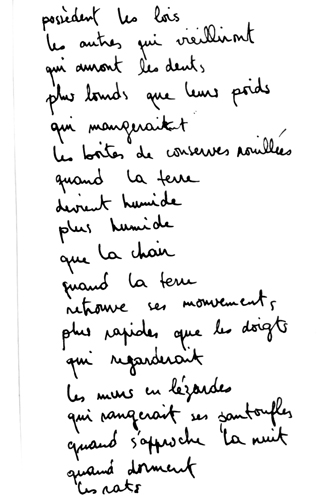 possèdent les lois
les autres qui vieilliront
qui auront les dents
plus lourds que leurs poids
qui mangerait
les boites de conserves rouillées
quand la terre
devient humide
plus humide
que la chair
quand la terre
retrouve ses mouvements
plus rapides que les doigts
qui regarderait
les murs en lézardes
qui rangerait ses pantoufles
quand s'approche la nuit
quand dorment
les rats